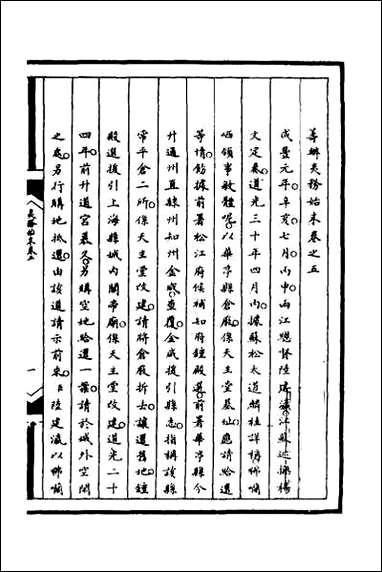 籌辦夷務始末卷之五
咸豐元年辛亥七月丙申兩江總督陸建瀛江蘇巡撫楊
文定奏道光三十年四月內據蘇松太道麟桂詳稱㗆嚙
哂領事敏體呢以華亭縣倉廒係天主堂基址應請給還
等情飭據前署松江府候補知府鐘殿選前署華亭縣今
升通州直隸州知州金咸查覆金咸援引縣志指稱該縣
常平倉二所係天主堂改建請將倉廒拆去讓還舊地鐘
殿選援引上海縣城內關帝廟係天主堂改建道光二十
四年前升道宮慕久另購空地給還一案請於城外空閒
之處另行購地抵還由該道請示前來臣陸建瀛以㗆嚙
夷務始末卷五
一